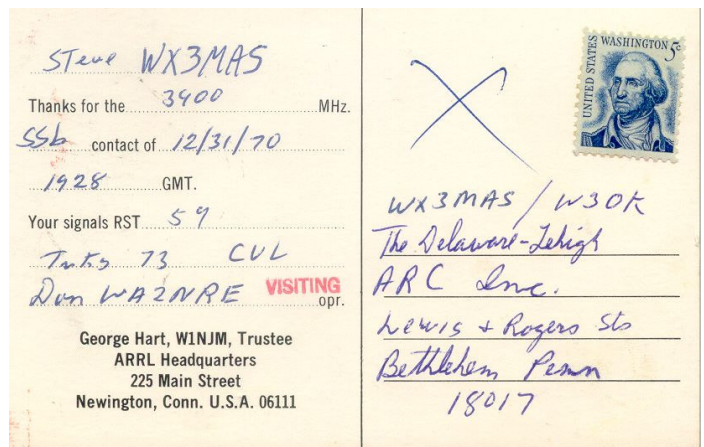 Steve WX3MAS
Thanks for the 3900 MHz.
SSb contact of 12/31/70
1928 GMT.
Your signals RST 59
Tnks 73 CUL
Don WA2NRE VISITING opr.
George Hart, W1NJM, Trustee
ARRL Headquarters
225 Main Street
Newington, Conn. U.S.A. 06111
UNITED STATES WASHINGTON 5c
X
WX3MAS / W3OK
The Delaware-Lehigh
ARC Inc.
Lewis + Rogers Sts
Bethlehem Penn
18017